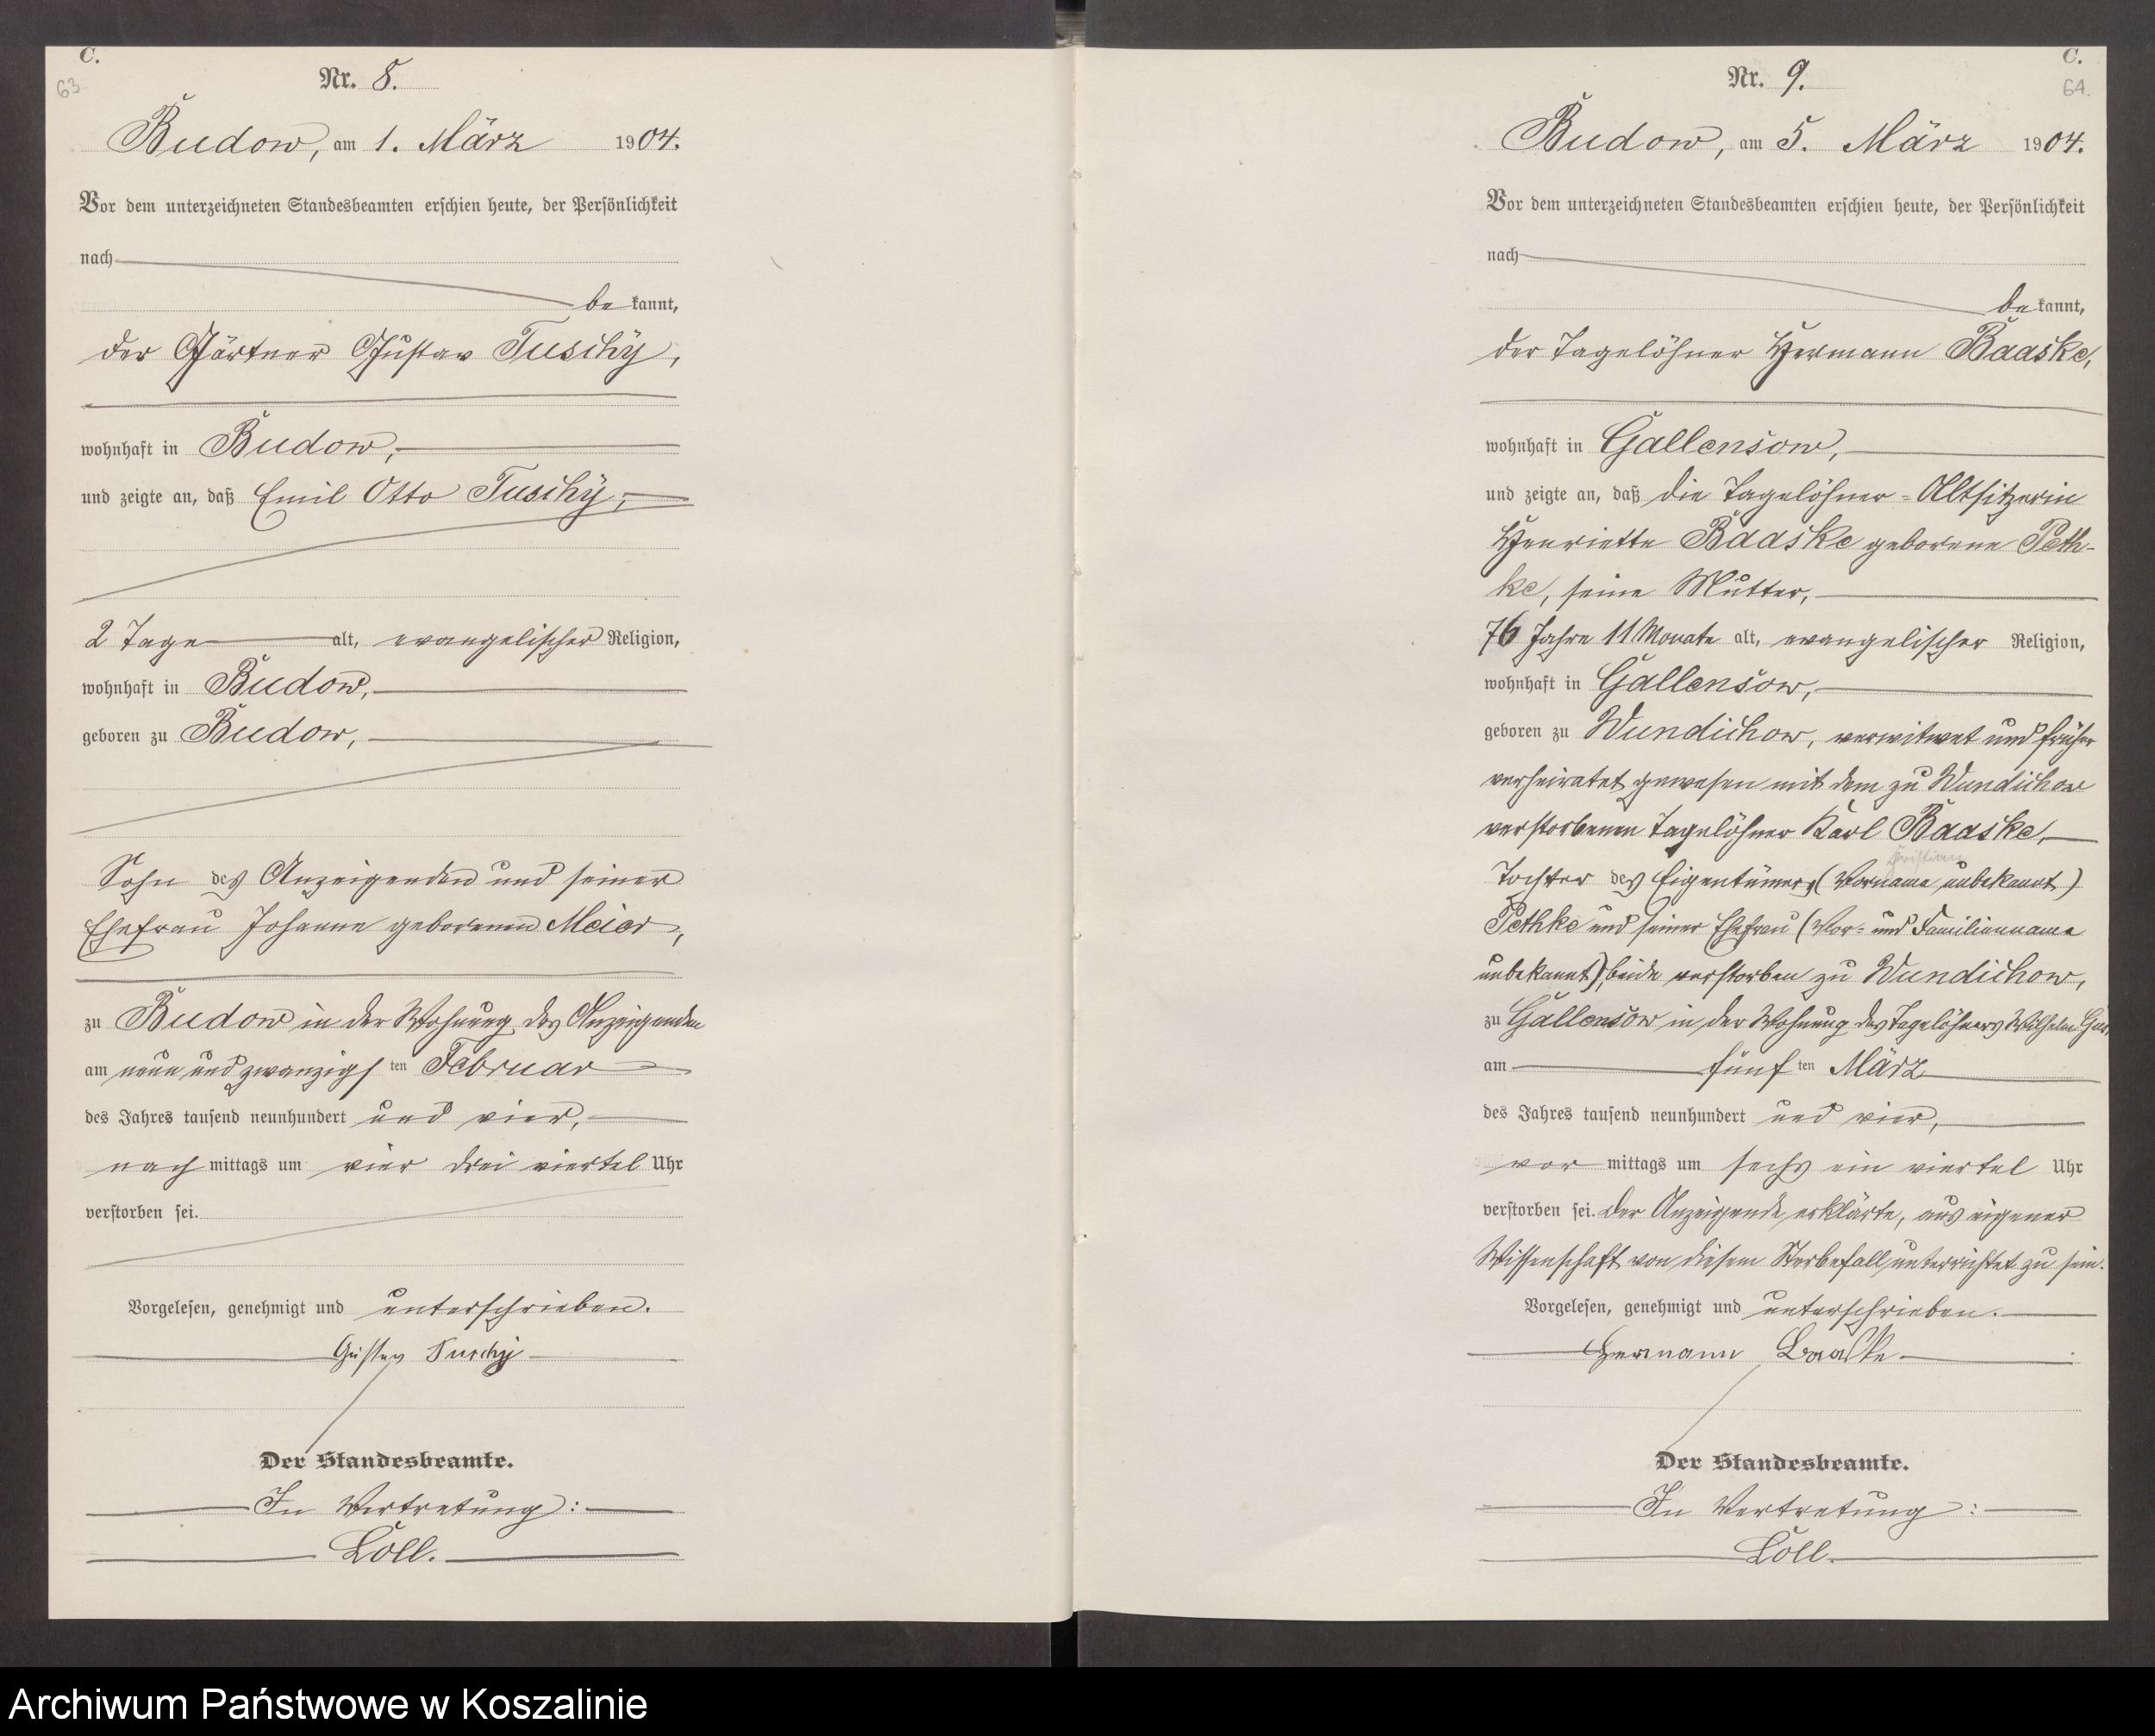 C.
63
Nr. 8.
Budow, am 1. März 1904.
Vor dem unterzeichneten Standesbeamten erschien heute, der Persönlichkeit
nach
be kannt,
der Gärtner Gustav Tuschy,
wohnhaft in Budow,
und zeigte an, daß Emil Otto Tuschy,
2 Tage alt, evangelischer Religion,
wohnhaft in Budow,
geboren zu Budow,
Sohn des Anzeigenden und seiner
Ehefrau Johanne geborenen Meier,
zu Budow in der Wohnung des Anzeigenden
am neun und zwanzigs ten Februar
des Jahres tausend neunhundert und vier,
nach mittags um vier drei viertel Uhr
verstorben sei.
Vorgelesen, genehmigt und unterschrieben.
Gustav Tuschy
Der Standesbeamte.
In Vertretung:
Löll.
C.
64.
Nr. 9.
Budow, am 5. März 1904.
Vor dem unterzeichneten Standesbeamten erschien heute, der Persönlichkeit
nach
be kannt,
der Tagelöhner Hermann Baaske,
wohnhaft in Gallensow,
und zeigte an, daß die Tagelöhner-Altsitzerin
Henriette Baaske geborene Peth-
ke, seine Mutter,
76 Jahre 11 Monate alt, evangelischer Religion,
wohnhaft in Gallensow,
geboren zu Wundichow, verwitwet und früher
verheiratet gewesen mit dem zu Wundichow
verstorbenen Tagelöhner Karl Baaske,
Tochter des Eigentümers (Vorname unbekannt)
Pethke und seiner Ehefrau (Vor- und Familienname
unbekannt), beide verstorben zu Wundichow,
zu Gallensow in der Wohnung des Tagelöhners Wilhelm
am fünf ten März
des Jahres tausend neunhundert und vier,
vor mittags um sechs ein viertel Uhr
verstorben sei. Der Anzeigende erklärte, aus eigener
Wissenschaft von diesem Sterbefall unterrichtet zu sein.
Vorgelesen, genehmigt und unterschrieben.
Hermann Baaske
Der Standesbeamte.
In Vertretung:
Löll.
Archiwum Państwowe w Koszalinie